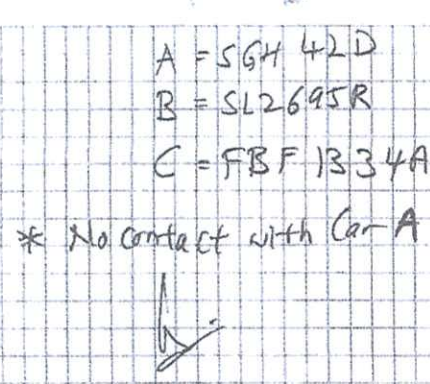 A = SGH 42D
B = SL2695R
C = FBF 1334A
* No contact with Car A